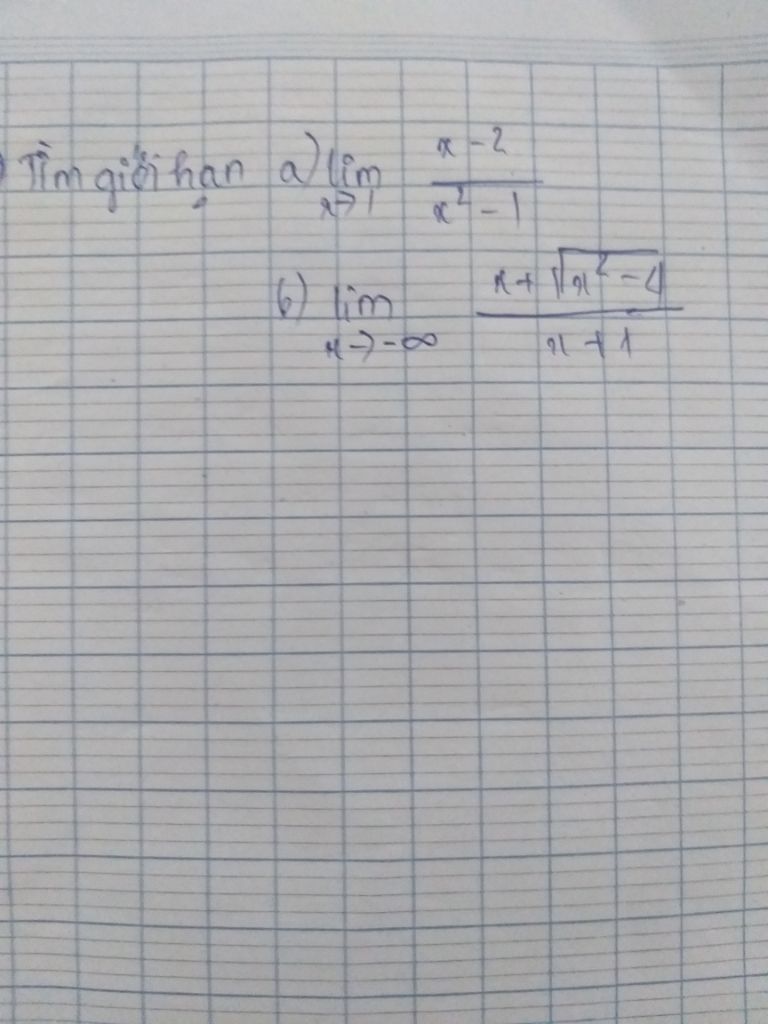 Tìm giới hạn a) lim x→1 (x - 2)/(x² - 1)
b) lim x→-∞ (x + √(x² - 4))/(x + 1)